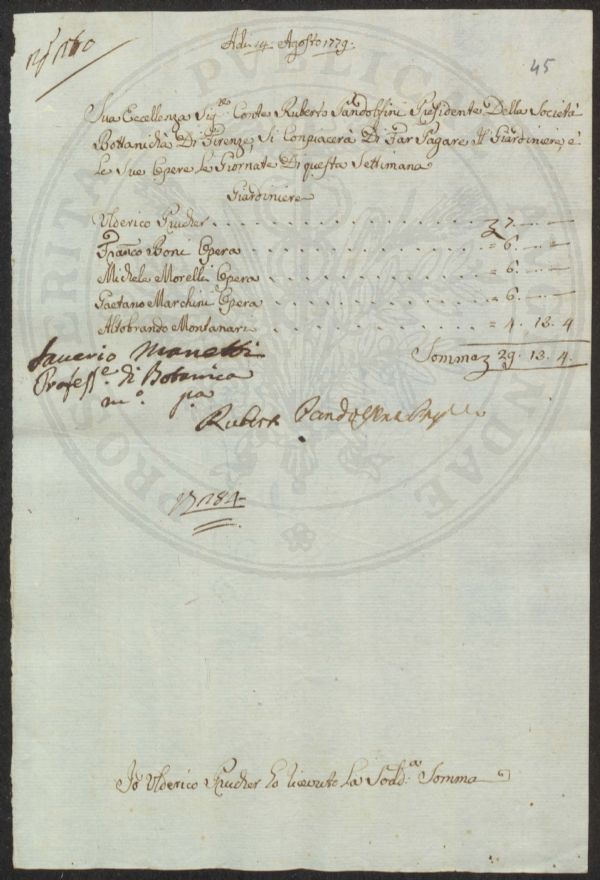 Adi 14 Agosto 1779.
45
Sua Eccellenza Sig.re Conte Ruberto Pandolfini Presidente Della Società
Bottanicha Di Firenze Si Conpiacerà Di Far Pagare Il Giardiniere, è
Le Sue Opere Le Giornate Di questa Settimana
Giardiniere
Ulderico Prucher . . . . . 7. — —
Franco Boni Opera . . . . . = 6. — =
Michele Morelli Opera . . . . . = 6. — —
Gaetano Marchini Opera . . . . . = 6. — —
Altobrando Montanari . . . . . = 4. 13. 4
Somma 29. 13. 4.
Saverio Manetti
Profess.e di Botanica
m.o pa
Ruberto Pandolfini
Io Ulderico Prucher ho ricevuto La Sodd.a Somma
PVBLICAE
PROSPERITATI AVGENDAE